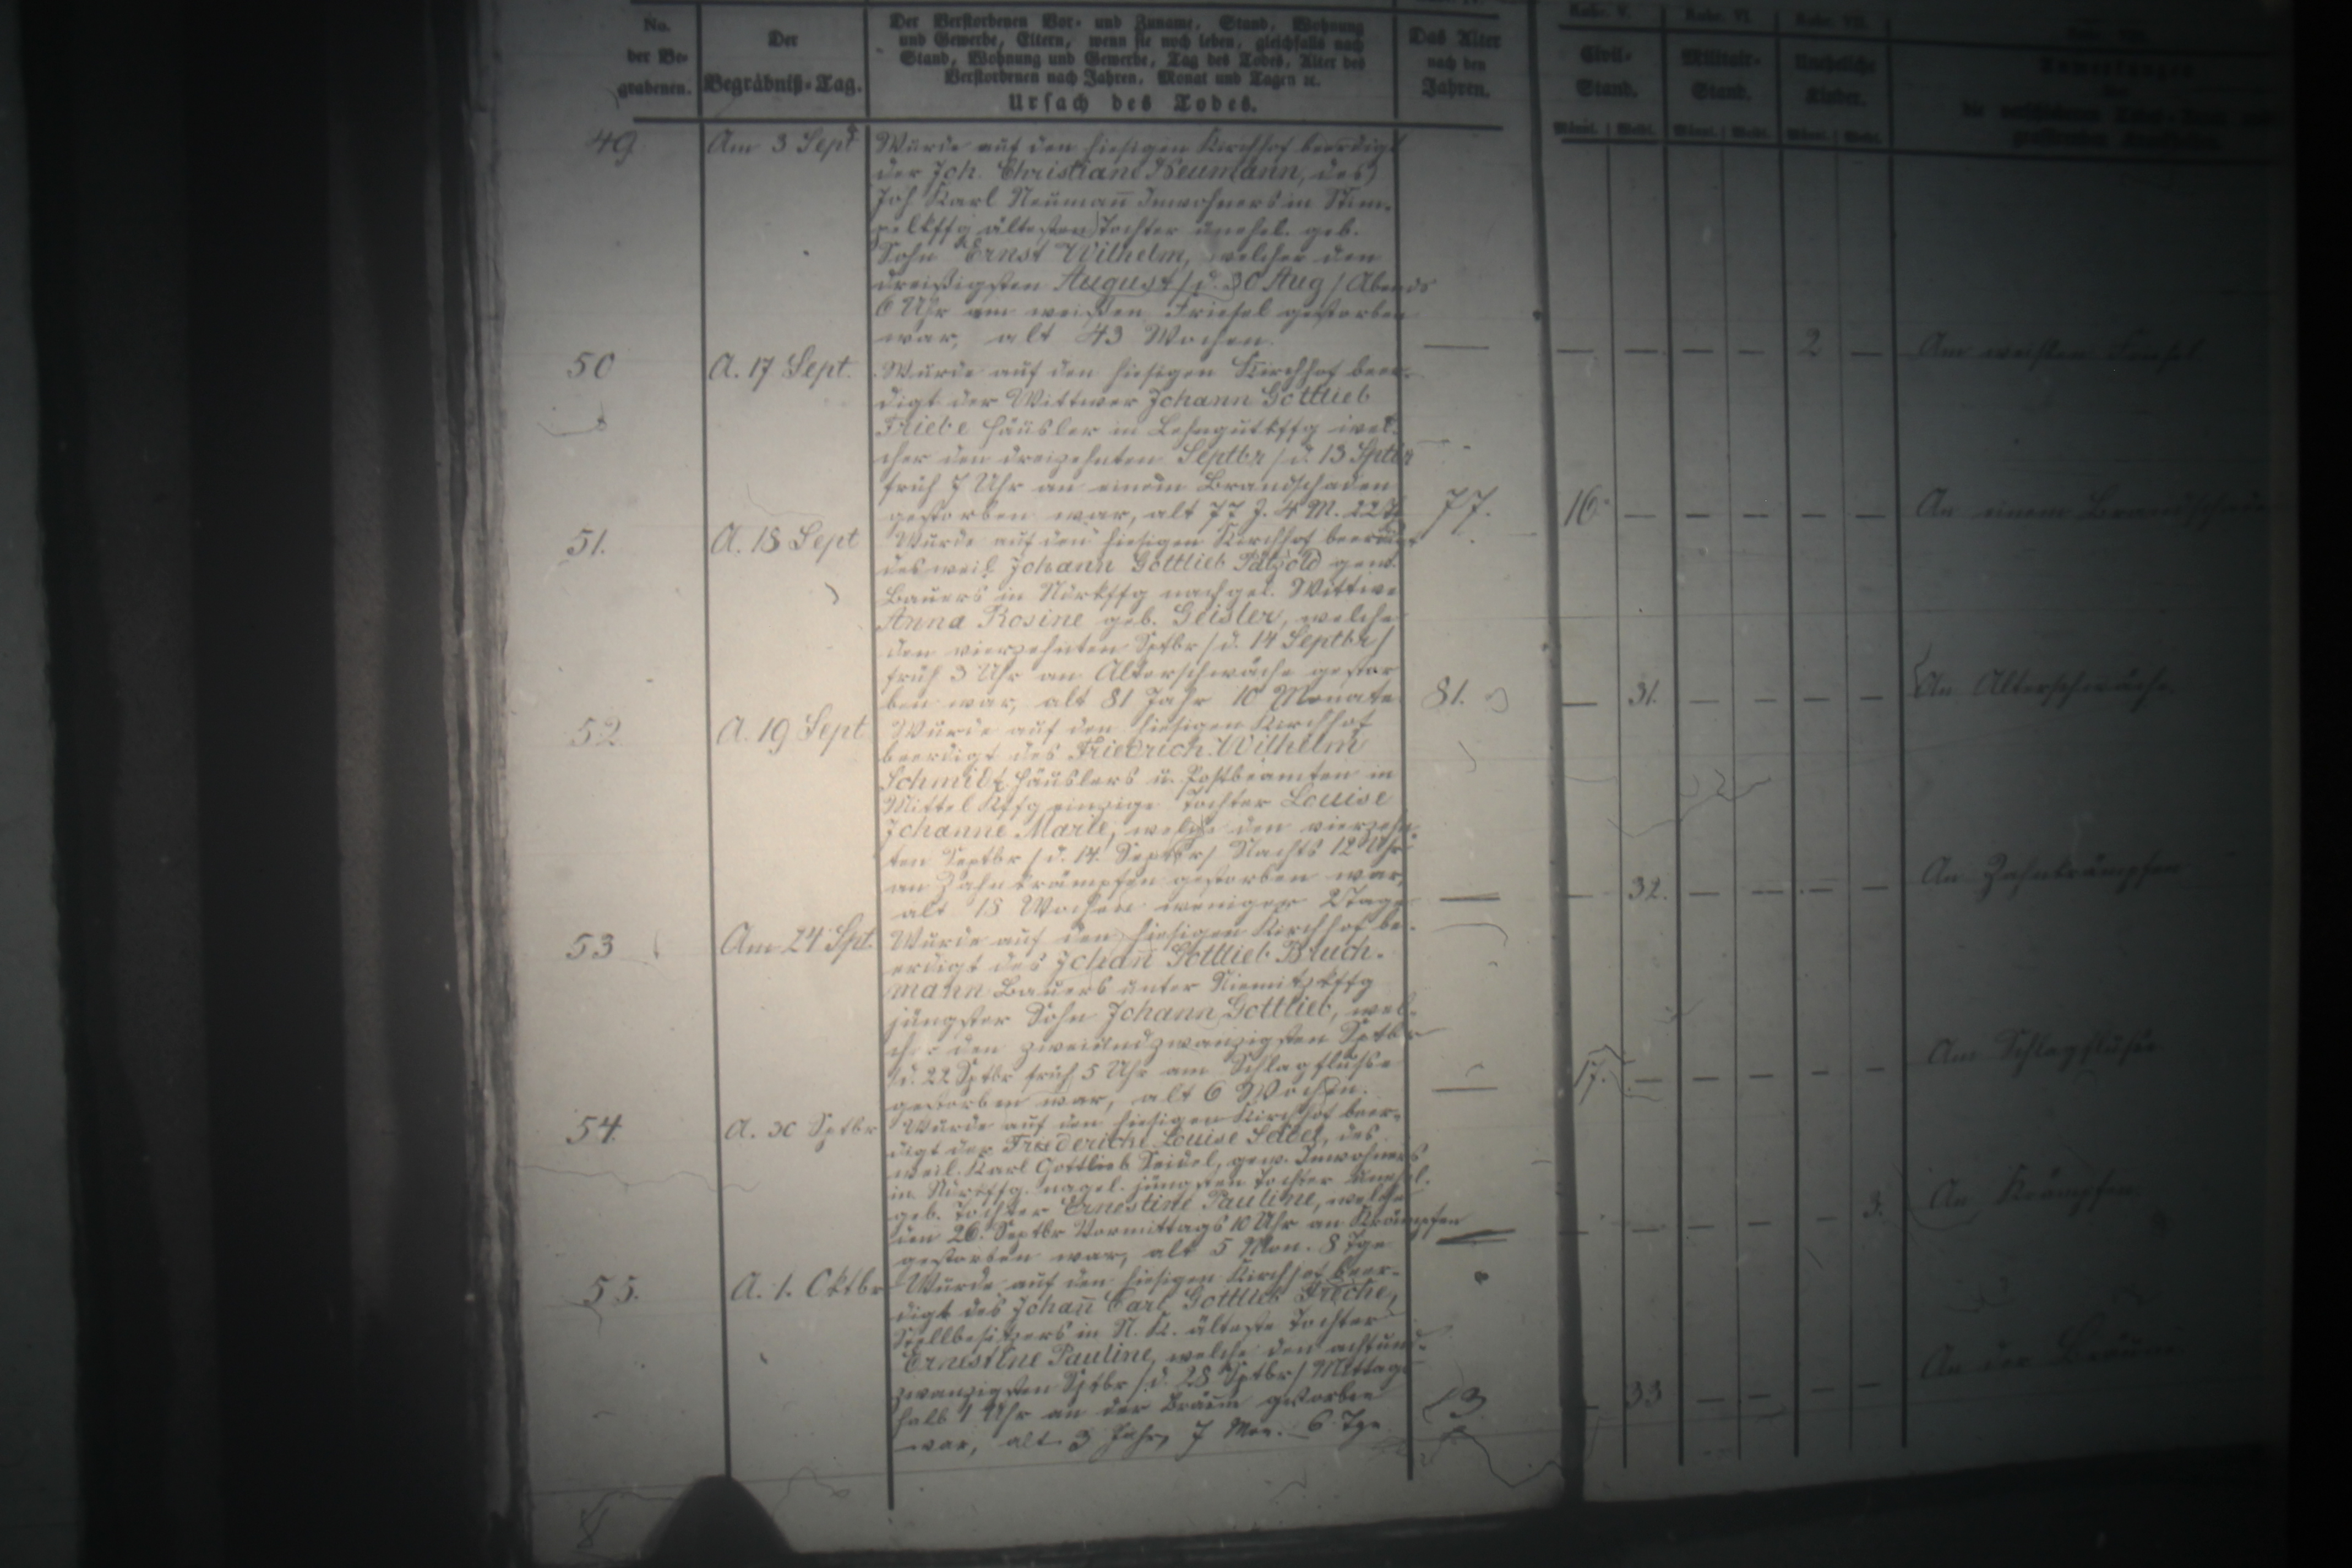 No.
der Be-
grabenen.
Der
Begräbniß-Tag.
Der Verstorbenen Vor- und Zuname, Stand, Wohnung
und Gewerbe, Eltern, wenn sie noch leben, gleichfalls nach
Stand, Wohnung und Gewerbe, Tag des Todes, Alter des
Verstorbenen nach Jahren, Monat und Tagen ꝛc.
Ursach des Todes.
Das Alter
nach den
Jahren.
Rubr. V.
Civil-
Stand.
Männl. Weibl.
Rubr. VI.
Militair-
Stand.
Männl. Weibl.
Rubr. VII.
Uneheliche
Kinder.
Männl. Weibl.
49
Am 3 Sept
Wurde auf den hiesigen Kirchhof beerdigt
der Joh. Christiane Neumann, des
Joh Karl Neumañ Inwohners in
ältesten Tochter unehel. geb.
Sohn Ernst Wilhelm, welcher den
dreißigsten August / d. 30 Aug / Abends
6 Uhr am weißen Friesel gestorben
war, alt 43 Wochen.
— — — — — 2 —
Am weißen Friesel
50
A. 17 Sept.
Wurde auf den hiesigen Kirchhof beer-
digt der Wittwer Johann Gottlieb
Friebe Häusler in Lehngutkffg wel-
cher den dreizehnten Septbr / d. 13 Sptbr
früh 7 Uhr an einem Brandschaden
gestorben war, alt 77 J. 4 M. 22 T.
77.
16. — — — — —
An einem Brandschaden
51.
A. 18 Sept
Wurde auf den hiesigen Kirchhof beerdigt
des weil. Johann Gottlieb Pätzold gew.
Bauers in Ndrkffg nachgel. Wittwe
Anna Rosine geb. Geisler, welche
den vierzehnten Sptbr / d. 14 Septbr /
früh 3 Uhr an Altersschwäche gestor
ben war, alt 81 Jahr 10 Monate
81.
— 31. — — — —
An Altersschwäche.
52
A. 19 Sept
Wurde auf den hiesigen Kirchhof
beerdigt des Friedrich Wilhelm
Schmidt Häuslers u. Postbeamten in
Mittel Kffg einzige Tochter Louise
Johanne Marie, welche den vierzehn-
ten Septbr / d. 14. Septbr / Nachts 12 Uhr
an Zahnkrämpfen gestorben war,
alt 18 Wochen weniger 2 Tage
— — 32. — — — —
An Zahnkrämpfen
53
Am 24 Spt.
Wurde auf den hiesigen Kirchhof be-
erdigt des Johañ Gottlieb Bruch-
mann Bauers unter Niemitzkffg
jüngster Sohn Johann Gottlieb, wel-
cher den zweiundzwanzigsten Sptbr
/ d. 22 Sptbr früh 5 Uhr am Schlagflusse
gestorben war, alt 6 Wochen.
— 17. — — — — —
Am Schlagflusse
54.
A. 30 Sptbr
Wurde auf den hiesigen Kirchhof beer-
digt der Friedericke Louise Seidel, des
weil. Karl Gottlieb Seidel, gew. Inwohners
in Ndrkffg. nagel. jüngsten Tochter unehel.
geb. Tochter Ernestine Pauline, welche
den 26. Septbr Vormittags 10 Uhr an Krämpfen
gestorben war, alt 5 Mon. 8 Tge
— — — — — — 3.
An Krämpfen
55.
A. 1. Oktbr
Wurde auf den hiesigen Kirchhof beer-
digt des Johañ Carl Gottlieb Freche,
Stellbesitzers in N. K. älteste Tochter
Ernestine Pauline, welche den achtund-
zwanzigsten Sptbr / d. 28 Sptbr / Mittags
halb 1 Uhr an der Bräune gestorben
war, alt 3 Jahr, 7 Mon. 6 Tge
3
— 33 — — — —
An der Bräune